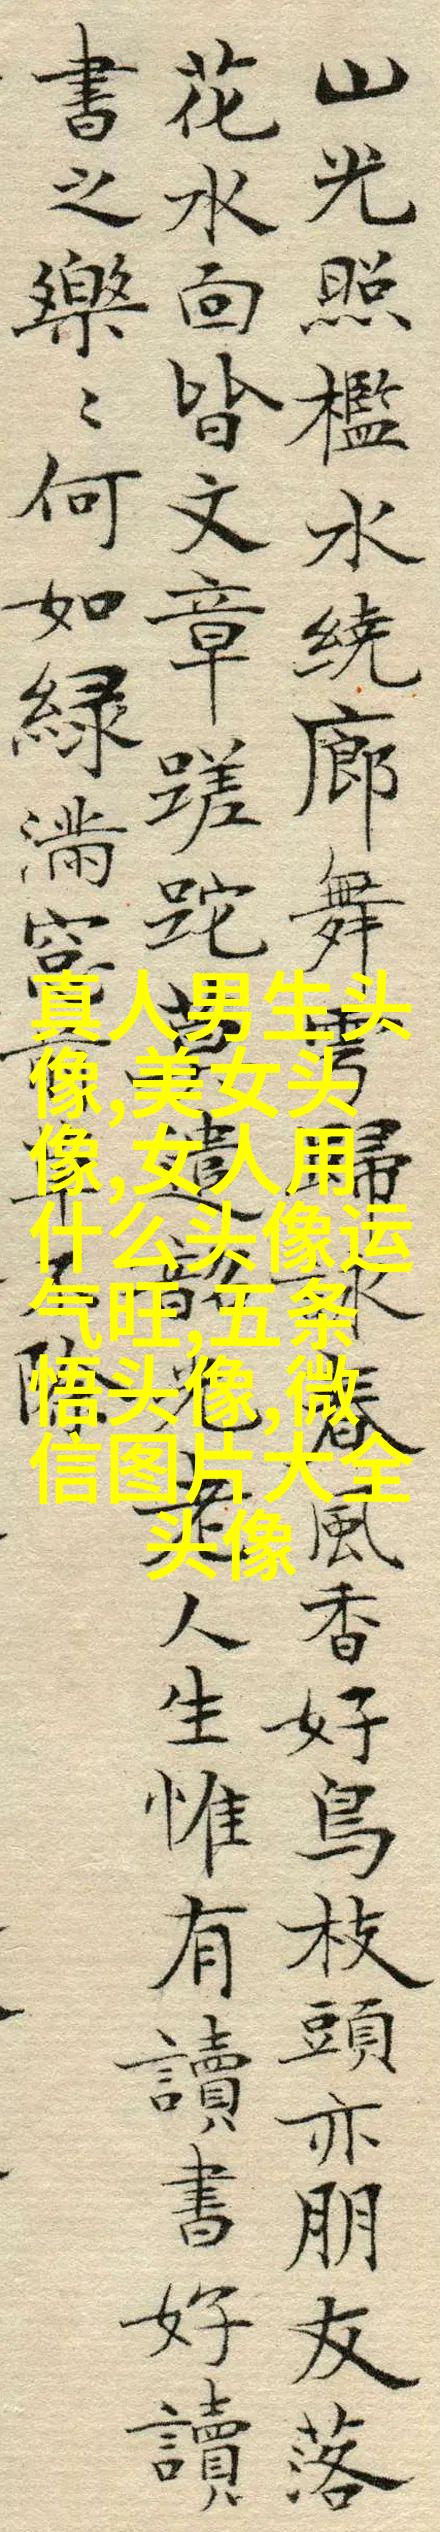 山光照檻水繞廊舞雩歸詠春風香好鳥枝頭亦朋友落
花水面皆文章蹉跎莫遣韶光老人生惟有讀書好讀
書之樂〻何如緑滿窓前草不除
真人男生头
像,美女头
像,女人用
什么头像运
气旺,五条
悟头像,微
信图片大全
头像